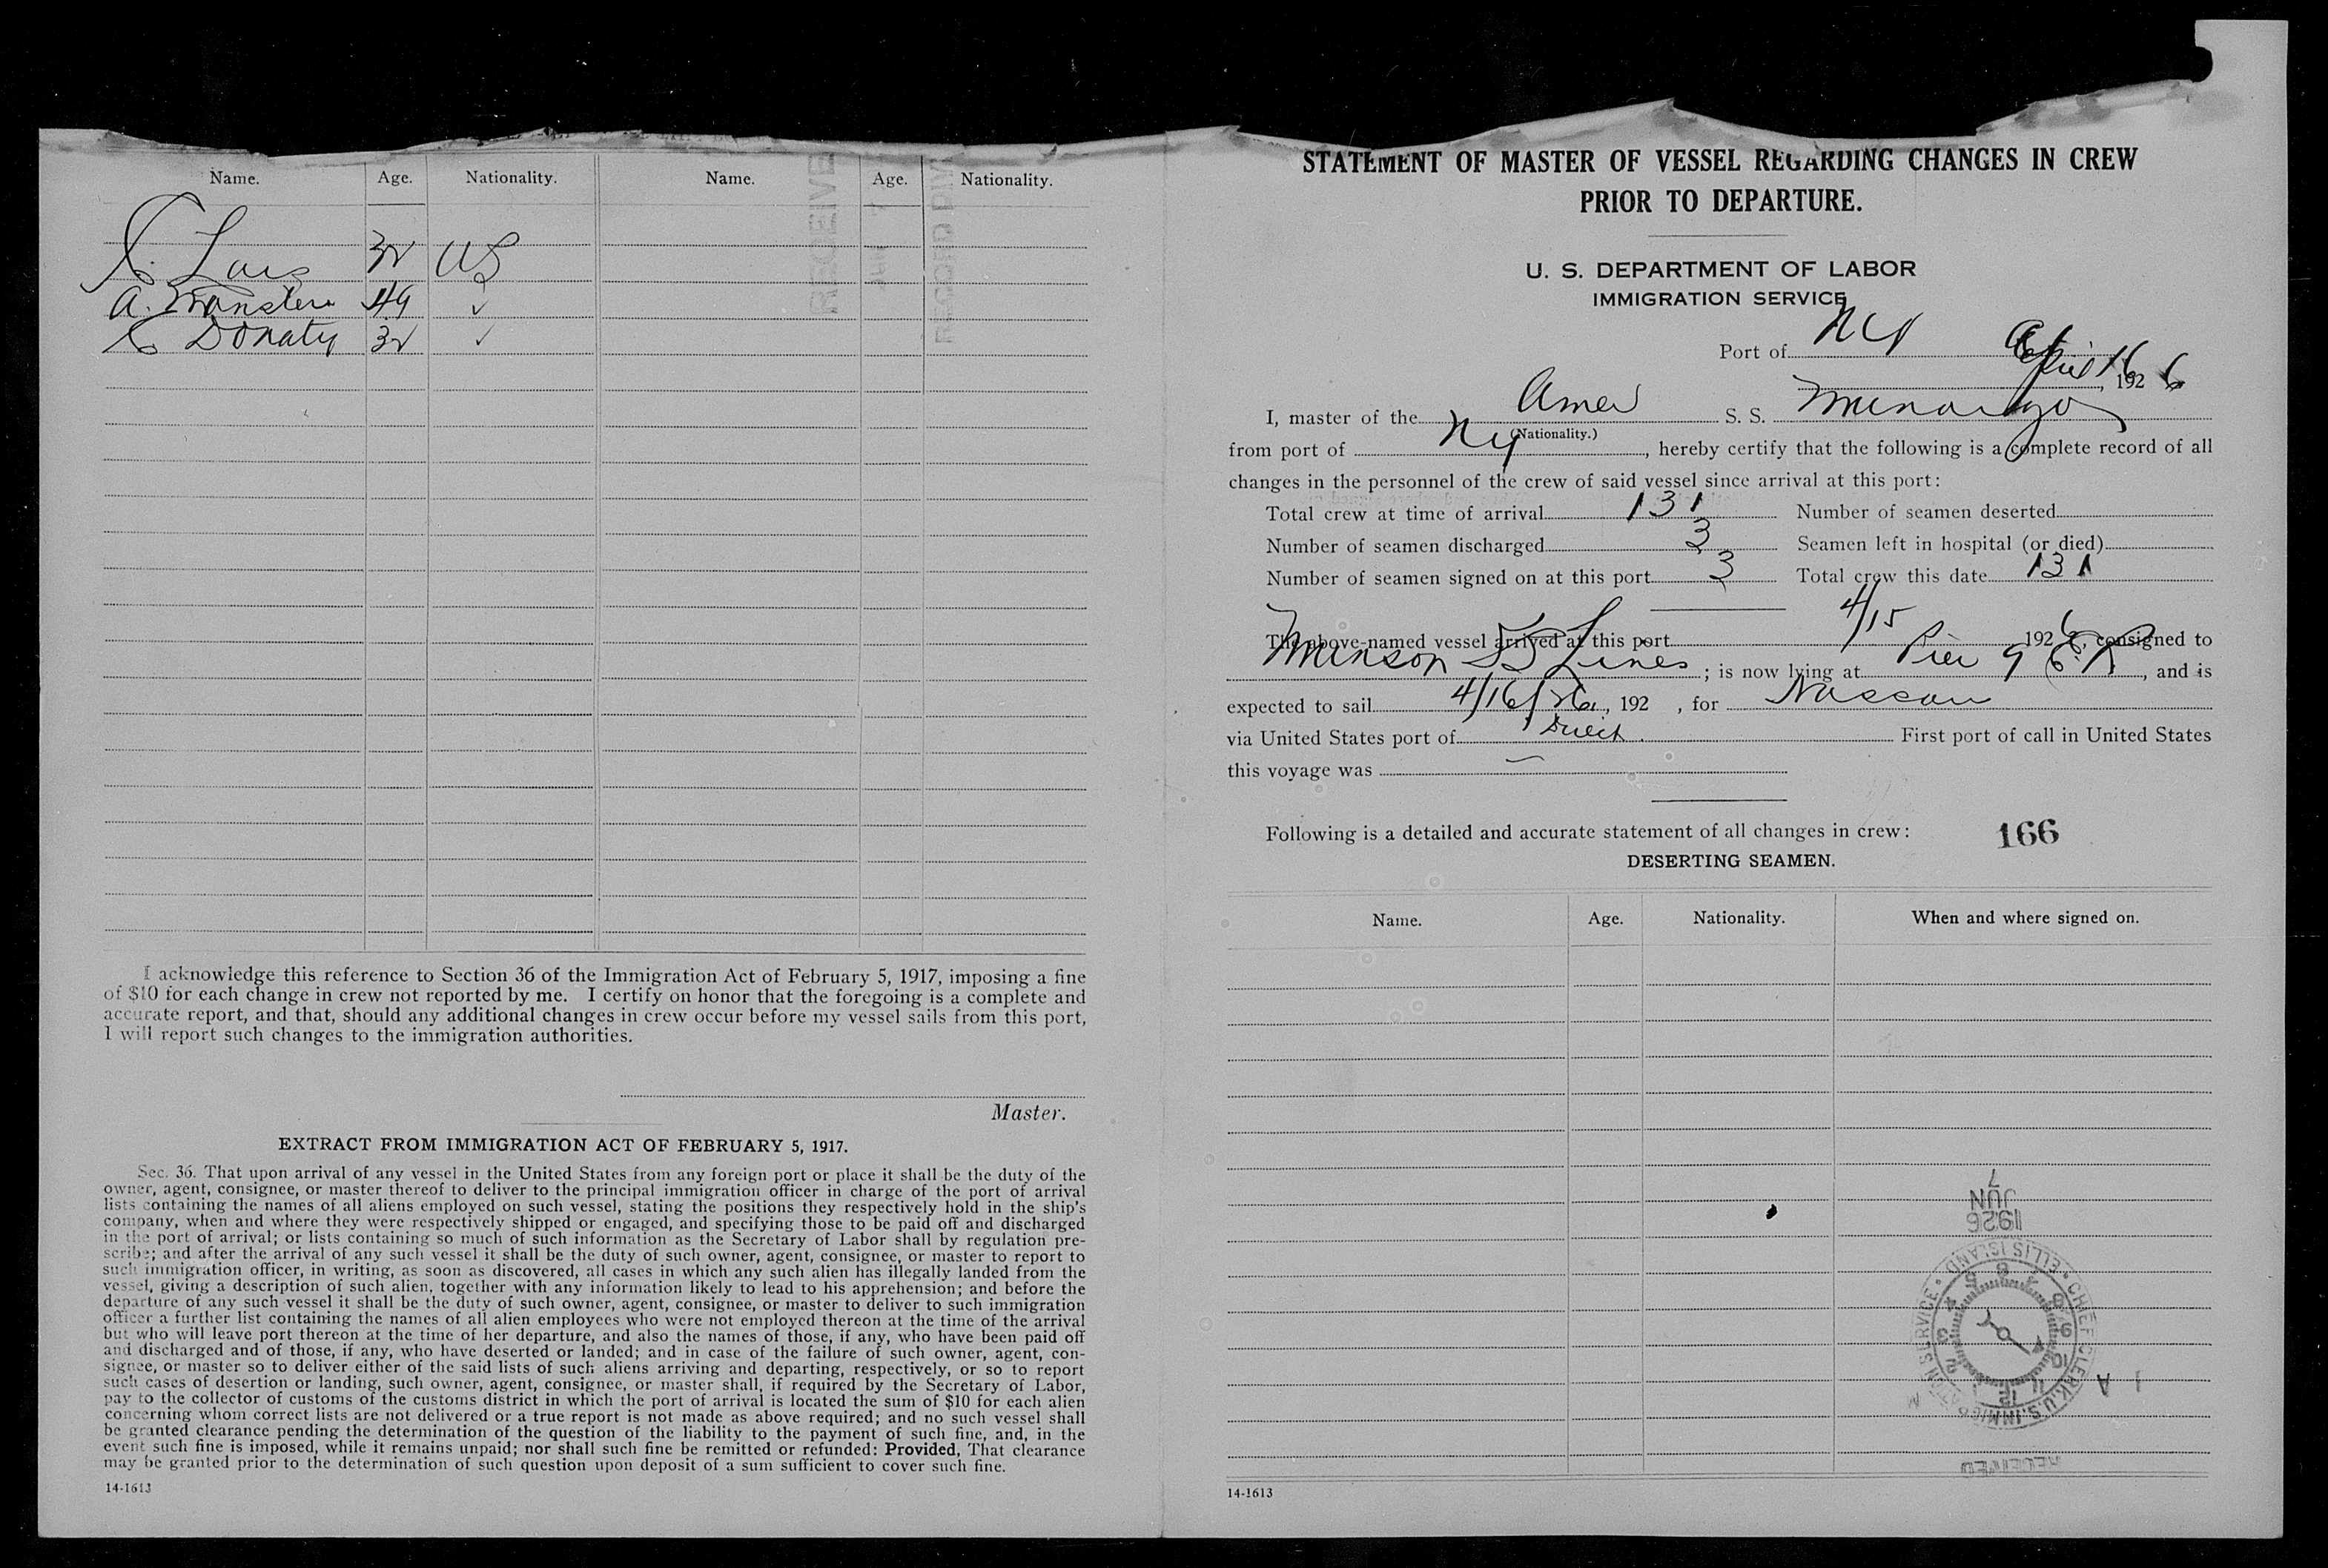 Name. Age. Nationality. Name. Age. Nationality.
C. Lars 32 US
A. 49 ✓
C Donaty 32 ✓
I acknowledge this reference to Section 36 of the Immigration Act of February 5, 1917, imposing a fine
of $10 for each change in crew not reported by me. I certify on honor that the foregoing is a complete and
accurate report, and that, should any additional changes in crew occur before my vessel sails from this port,
I will report such changes to the immigration authorities.
Master.
EXTRACT FROM IMMIGRATION ACT OF FEBRUARY 5, 1917.
Sec. 36. That upon arrival of any vessel in the United States from any foreign port or place it shall be the duty of the
owner, agent, consignee, or master thereof to deliver to the principal immigration officer in charge of the port of arrival
lists containing the names of all aliens employed on such vessel, stating the positions they respectively hold in the ship's
company, when and where they were respectively shipped or engaged, and specifying those to be paid off and discharged
in the port of arrival; or lists containing so much of such information as the Secretary of Labor shall by regulation pre-
scribe; and after the arrival of any such vessel it shall be the duty of such owner, agent, consignee, or master to report to
such immigration officer, in writing, as soon as discovered, all cases in which any such alien has illegally landed from the
vessel, giving a description of such alien, together with any information likely to lead to his apprehension; and before the
departure of any such vessel it shall be the duty of such owner, agent, consignee, or master to deliver to such immigration
officer a further list containing the names of all alien employees who were not employed thereon at the time of the arrival
but who will leave port thereon at the time of her departure, and also the names of those, if any, who have been paid off
and discharged and of those, if any, who have deserted or landed; and in case of the failure of such owner, agent, con-
signee, or master so to deliver either of the said lists of such aliens arriving and departing, respectively, or so to report
such cases of desertion or landing, such owner, agent, consignee, or master shall, if required by the Secretary of Labor,
pay to the collector of customs of the customs district in which the port of arrival is located the sum of $10 for each alien
concerning whom correct lists are not delivered or a true report is not made as above required; and no such vessel shall
be granted clearance pending the determination of the question of the liability to the payment of such fine, and, in the
event such fine is imposed, while it remains unpaid; nor shall such fine be remitted or refunded: Provided, That clearance
may be granted prior to the determination of such question upon deposit of a sum sufficient to cover such fine.
14-1613
STATEMENT OF MASTER OF VESSEL REGARDING CHANGES IN CREW
PRIOR TO DEPARTURE.
U. S. DEPARTMENT OF LABOR
IMMIGRATION SERVICE
Port of NY
April 16, 1926
I, master of the Amer S. S. Munargo
(Nationality.)
from port of NY, hereby certify that the following is a complete record of all
changes in the personnel of the crew of said vessel since arrival at this port:
Total crew at time of arrival 131 Number of seamen deserted
Number of seamen discharged 3 Seamen left in hospital (or died)
Number of seamen signed on at this port 3 Total crew this date 131
The above-named vessel arrived at this port 4/15 1926, consigned to
Munson SS Lines; is now lying at Pier 9 E.R., and is
expected to sail 4/16/26, 192 , for Nassau
via United States port of Direct. First port of call in United States
this voyage was —
Following is a detailed and accurate statement of all changes in crew:
166
DESERTING SEAMEN.
Name. Age. Nationality. When and where signed on.
7
JUN
1926
CHIEF CLERK U.S. IMMIGRATION SERVICE • ELLIS ISLAND •
RECEIVED
14-1613